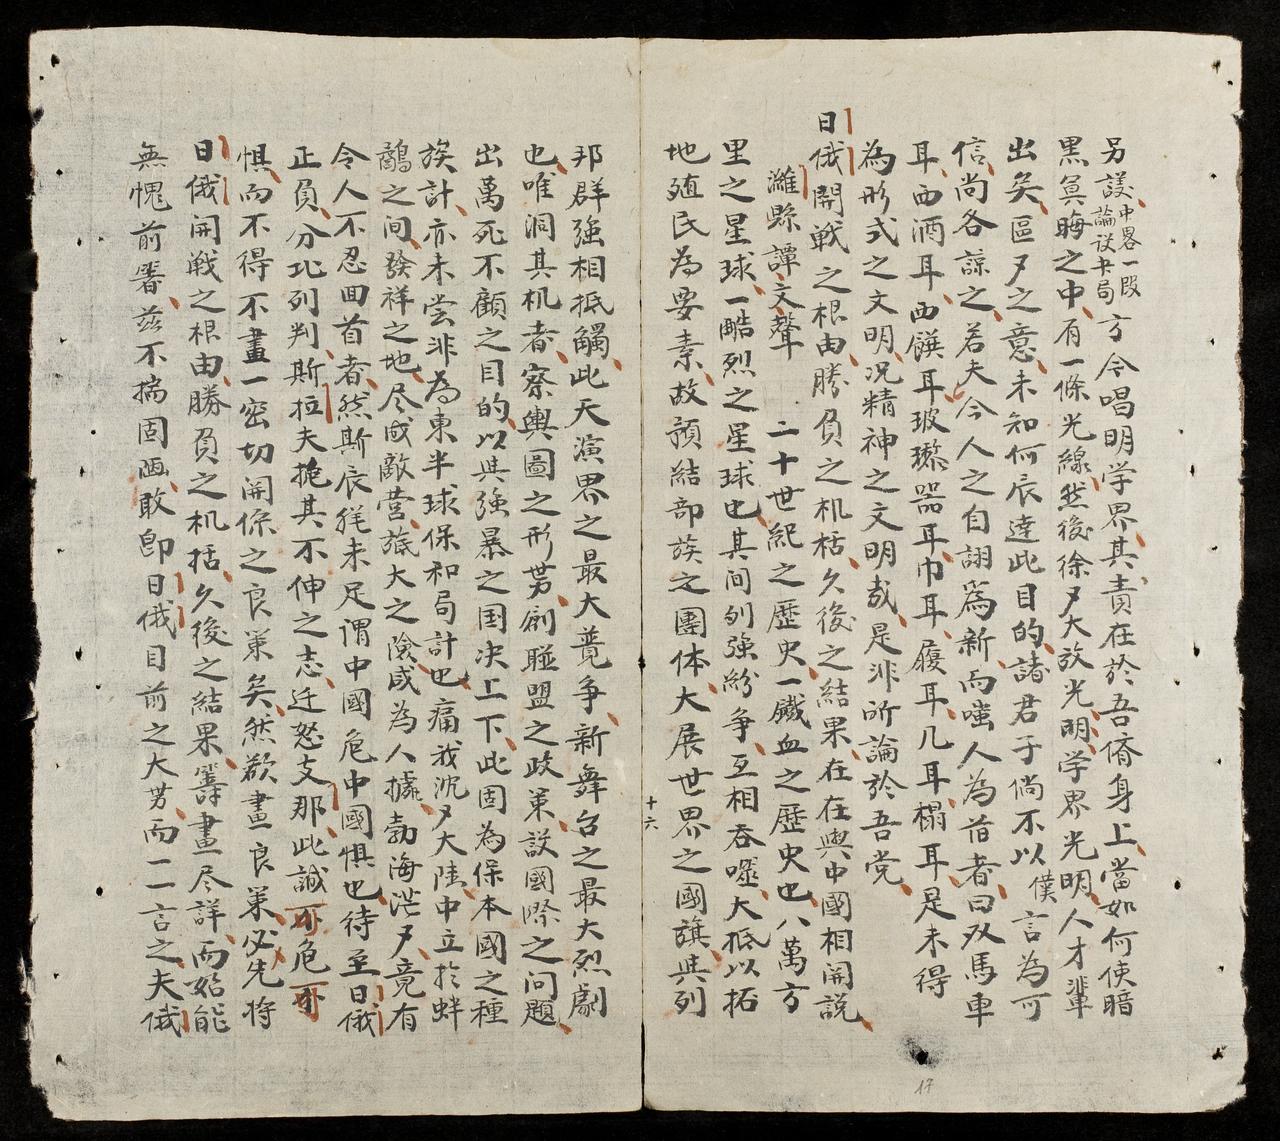 另議、中畧一段論議卡局方今唱明学界、其責在於吾儕身上、當如何使暗
黑冥晦之中、有一條光線、然後徐々大放光明、学界光明、人才輩
出矣、區々之意、未知何辰達此目的、諸君子倘不以僕言為可
信、尚各諒之、若夫今人之自詡為新、而嗤人為旧者、曰双馬車
耳、西酒耳、西饌耳、玻瓈器耳、巾耳、履耳、几耳、榻耳、是未得
為形式之文明、况精神之文明哉、是非所論於吾党、
日俄開戦之根由、勝負之机栝、久後之結果、在在與中國相関説、
濰縣譚文聲
二十世紀之歷史、一鐵血之歷史也、八萬方
里之星球、一酷烈之星球也、其间列強紛争、互相吞噬、大抵以拓
地殖民為要素、故預結部族之團体、大展世界之國旗、與列
邦群強相抵觸、此天演界之最大競争、新舞台之最大烈劇
也、唯洞其机者、察輿圖之形势、刱聯盟之政策、設國際之问題、
出萬死不顧之目的、以與強暴之国决上下、此固為保本國之種
族計、亦未尝非為東半球保和局計也、痛我沉々大陸、中立於蚌
鷸之间、發祥之地、尽成敵营、旅大之險、咸為人據、勃海茫々、竟有
令人不忍回首者、然斯辰猶未足谓中國危中國惧也、待至日俄
正負分北、列判斯拉夫挽其不伸之志、迁怒支那、此誠不危不
惧、而不得不畫一密切開係之良策矣、然欲畫良策、必先将
日俄开戦之根由、勝負之机括、久後之结果、籌畫尽詳、而始能
無愧前畧、兹不揣固陋、敢即日俄目前之大势、而一一言之、夫俄
十六
17